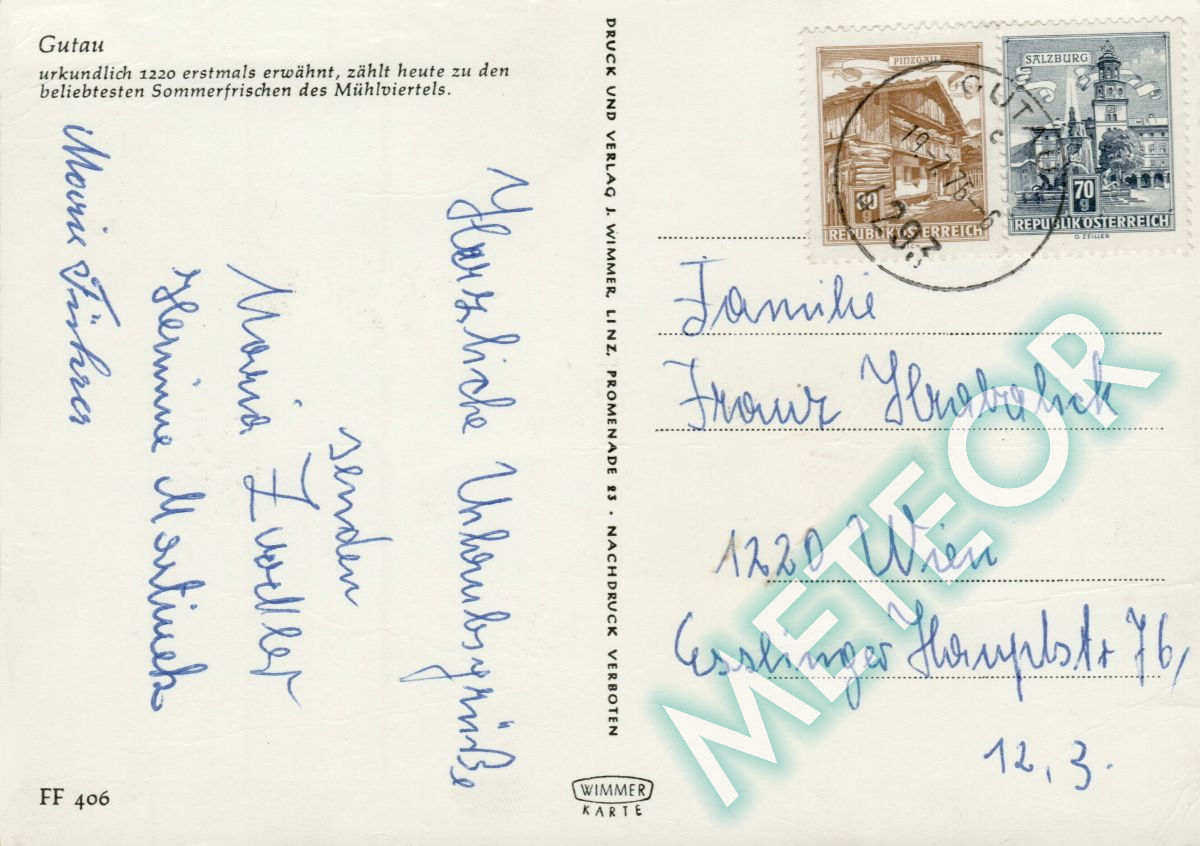 Gutau
urkundlich 1220 erstmals erwähnt, zählt heute zu den
beliebtesten Sommerfrischen des Mühlviertels.
Herzliche Urlaubsgrüße
senden
Maria
Hermine Martinek
Marie Führer
FF 406
DRUCK UND VERLAG J. WIMMER, LINZ, PROMENADE 23 · NACHDRUCK VERBOTEN
WIMMER
KARTE
PINZGAU
REPUBLIK ÖSTERREICH
SALZBURG
70
g
REPUBLIK ÖSTERREICH
O. ZEILLER
GUTAU
c
19.-7.75-6
4293
Familie
Franz Hrabalick
1220 Wien
Esslinger Hauptstr 76,
12, 3.
METEOR